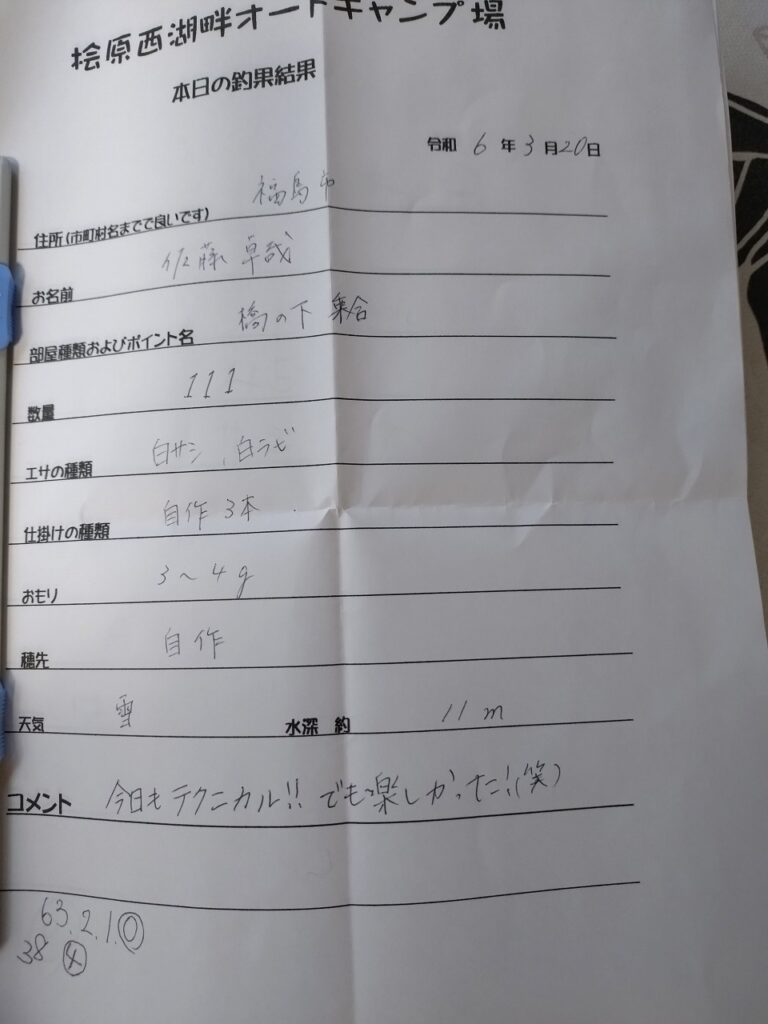 桧原西湖畔オートキャンプ場
本日の釣果結果
令和 6 年 3 月 20 日
住所(市町村名までで良いです) 福島市
お名前 佐藤 卓哉
部屋種類およびポイント名 橋の下 集合
数量 111
エサの種類 白サシ、白ラビ
仕掛けの種類 自作 3本
おもり 3～4g
穂先 自作
天気 雪 水深 約 11m
コメント 今日もテクニカル!! でも楽しかった!(笑)
63.2.1.⓪
38 ④